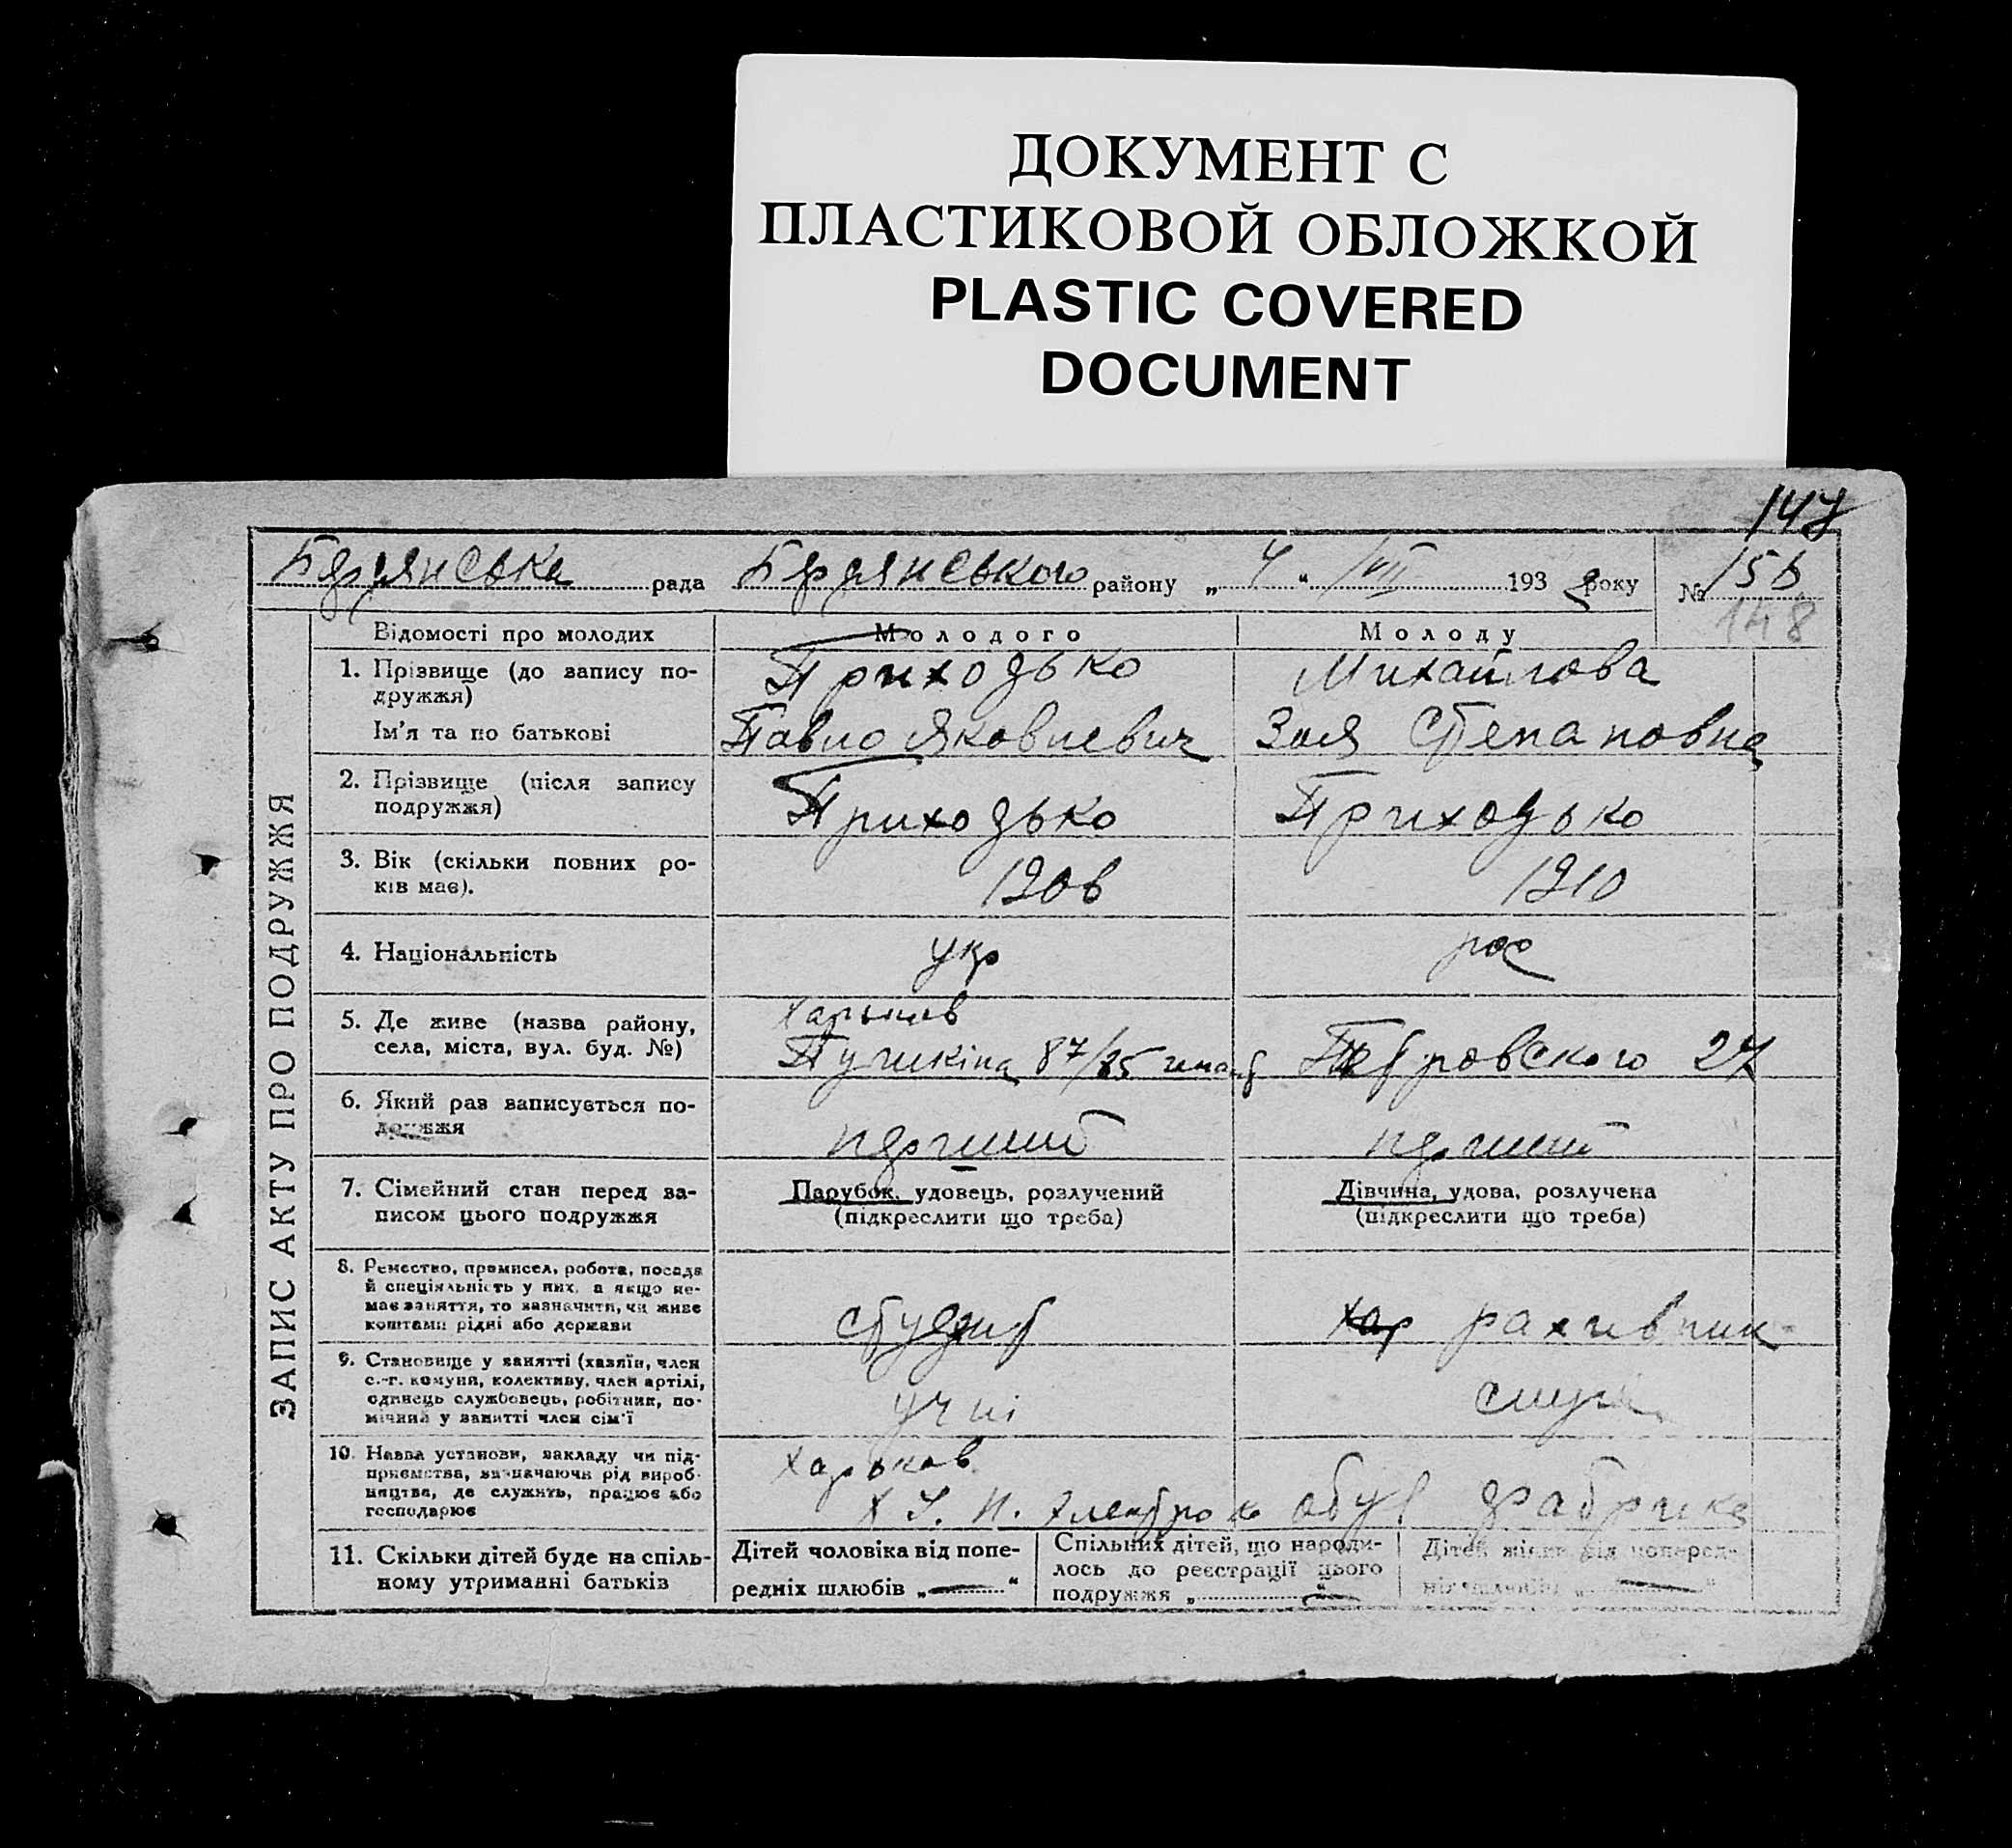 ДОКУМЕНТ С
ПЛАСТИКОВОЙ ОБЛОЖКОЙ
PLASTIC COVERED
DOCUMENT
147
Бердянська рада Бердянського району „ 4 “ VIII 193 року № 156
148
ЗАПИС АКТУ ПРО ПОДРУЖЖЯ
Відомості про молодих Молодого Молоду
1. Прізвище (до запису по-
дружжя)
Приходько Михайлова
Ім'я та по батькові Павло Яковлевич Зоя Степановна
2. Прізвище (після запису
подружжя)
Приходько Приходько
3. Вік (скільки повних ро-
ків має).
1906 1910
4. Національність укр рос
5. Де живе (назва району,
села, міста, вул. буд. №)
Харьків
Пушкіна 87/85 Петровского 27
6. Який раз записується по-
дружжя
перший перший
7. Сімейний стан перед за-
писом цього подружжя
Парубок, удовець, розлучений
(підкреслити що треба)
Дівчина, удова, розлучена
(підкреслити що треба)
8. Ремество, промисел, робота, посада
й спеціяльність у них, а якщо не-
має заняття, то зазначити, чи живе
коштами рідні або держави
студент хар рахівник
9. Становище у занятті (хазяїн, член
с.-г. комуни, колективу, член артілі,
одинець службовець, робітник, по-
мічний у занятті член сім'ї
учні служ
10. Назва установи, закладу чи під-
приємства, зазначаючи рід вироб-
ництва, де служить, працює або
господарює
Харьков
Х. И. обув фабрика
11. Скільки дітей буде на спіль-
ному утриманні батьків
Дітей чоловіка від попе-
редніх шлюбів „ — “
Спільних дітей, що народи-
лось до реєстрації цього
подружжя „ — “
Дітей жінки від поперед-
ніх шлюбів „ — “